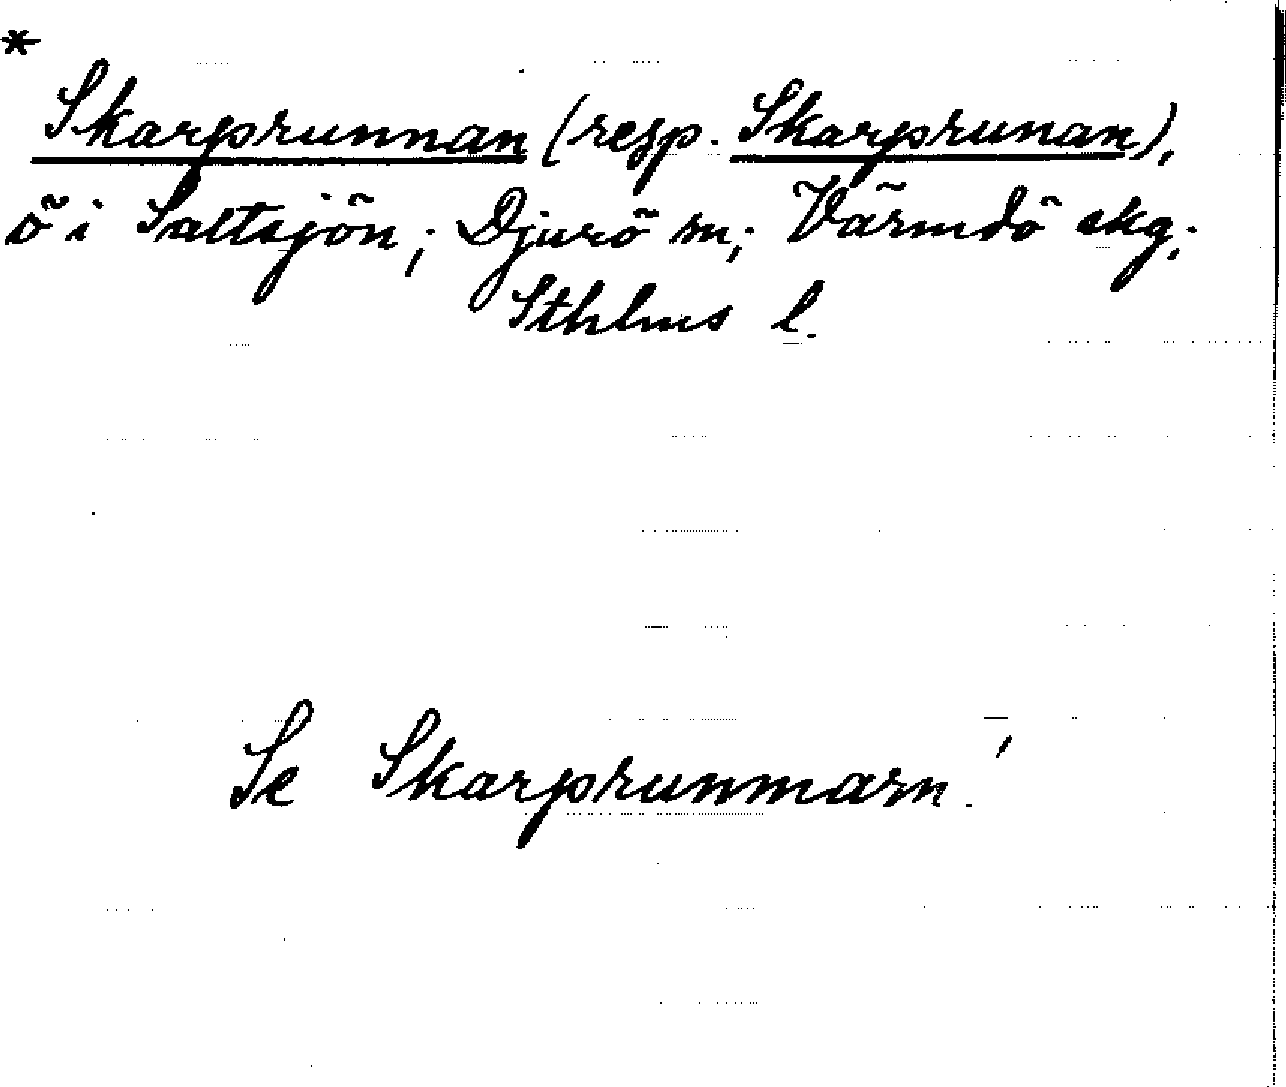 *
Skarprunnan (resp. Skarprunan),
ö i Saltsjön; Djurö sn; Värmdö skg;
Sthlms l.
Se Skarprunmarn!